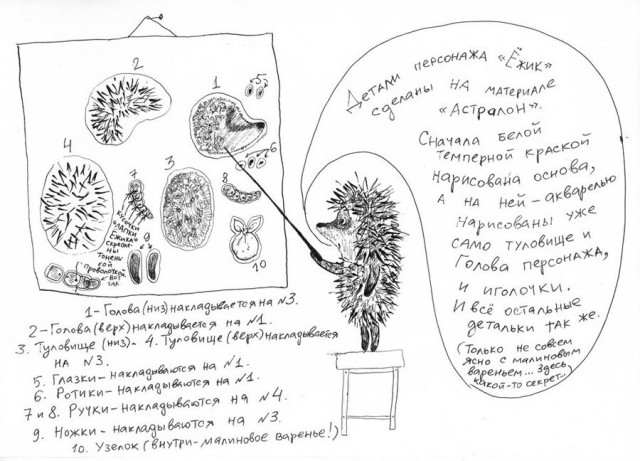 2
1
5
6
4
3
7
8
9
10
кусочки
лапки
Ёжика
скрепле-
ны
тонень
кой
проволочкой
вот
так
Детали персонажа «Ёжик»
сделаны на материале
«Астралон».
Сначала белой
темперной краской
нарисована основа,
а на ней – акварелью
нарисованы уже
само туловище и
голова персонажа,
и иголочки.
И всё остальные
детальки так же.
(Только не совсем
ясно с малиновым
вареньем... Здесь
какой-то секрет...)
1- Голова (низ) накладывается на №3.
2- Голова (верх) накладывается на №1.
3. Туловище (низ)- 4. Туловище (верх) накладывается
на №3.
5. Глазки- накладываются на №1.
6. Ротики- накладываются на №1.
7 и 8. Ручки- накладываются на №4.
9. Ножки- накладываются на №3.
10. Узелок (внутри- малиновое варенье!)